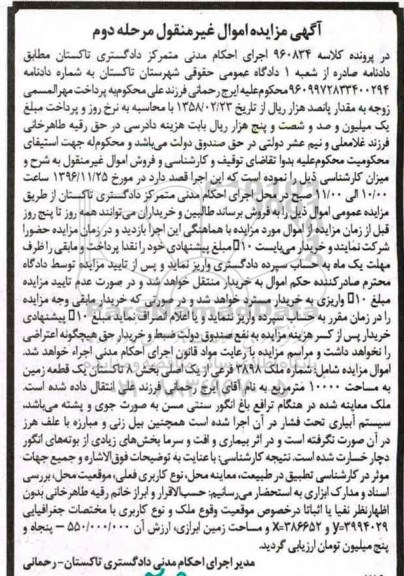 آگهی مزایده اموال غیرمنقول مرحله دوم
در پرونده کلاسه ۹۶۰۸۳۴ اجرای احکام مدنی متمرکز دادگستری تاکستان مطابق
دادنامه صادره از شعبه ۱ دادگاه عمومی حقوقی شهرستان تاکستان به شماره دادنامه
۹۶۰۹۹۷۲۸۳۳۴۰۰۲۹۴ محکوم‌علیه ایرج رحمانی فرزند علی محکوم‌به پرداخت مهرالمسمی
زوجه به مقدار پانصد هزار ریال از تاریخ ۱۳۵۸/۰۲/۲۳ با محاسبه به نرخ روز و پرداخت مبلغ
یک میلیون و صد و شصت و پنج هزار ریال بابت هزینه دادرسی در حق رقیه طاهرخانی
فرزند غلامعلی و نیم عشر دولتی در حق صندوق دولت می‌باشد و محکوم‌له جهت استیفای
محکومیت محکوم‌علیه بدوا تقاضای توقیف و کارشناسی و فروش اموال غیرمنقول به شرح و
میزان کارشناسی ذیل را نموده است که این اجرا قصد دارد در مورخ ۱۳۹۶/۱۱/۲۵ ساعت
۱۰/۰۰ الی ۱۱/۰۰ صبح در محل اجرای احکام مدنی متمرکز دادگستری تاکستان از طریق
مزایده عمومی اموال ذیل را به فروش برساند طالبین و خریداران می‌توانند همه روز تا پنج روز
قبل از زمان مزایده از اموال مورد مزایده با هماهنگی این اجرا بازدید و در زمان مزایده حضورا
شرکت نمایند و خریدار می‌بایست ۱۰٪ مبلغ پیشنهادی خود را نقدا پرداخت و مابقی را ظرف
مهلت یک ماه به حساب سپرده دادگستری واریز نماید و پس از تایید مزایده توسط دادگاه
محترم صادرکننده حکم اموال به خریدار منتقل خواهد شد و در صورت عدم تایید مزایده
مبلغ ۱۰٪ واریزی به خریدار مسترد خواهد شد و در صورتی که خریدار مابقی وجه مزایده
را در زمان مقرر به حساب سپرده واریز ننماید و یا اعلام انصراف نماید مبلغ ۱۰٪ پیشنهادی
خریدار پس از کسر هزینه مزایده به نفع صندوق دولت ضبط و خریدار حق هیچگونه اعتراضی
را نخواهد داشت و مراسم مزایده با رعایت مواد قانون اجرای احکام مدنی اجراء خواهد شد.
اموال مزایده شامل: شماره ملک ۳۸۹۸ فرعی از یک اصلی بخش ۸ تاکستان یک قطعه زمین
به مساحت ۱۰۰۰۰ مترمربع به نام آقای ایرج رحمانی فرزند علی انتقال داده شده است.
ملک معاینه شده در هنگام ترافع باغ انگور سنتی مسن به صورت جوی و پشته می‌باشد.
سیستم آبیاری تحت فشار در آن اجرا شده است همچنین بیل زنی و مبارزه با علف هرز
در آن صورت نگرفته است و در اثر بیماری و آفت و سرما بخش‌های زیادی از بوته‌های انگور
دچار خسارت شده است. نتیجه کارشناسی: با عنایت به توضیحات فوق‌الاشاره و جمیع جهات
موثر در کارشناسی تطبیق در طبیعت، معاینه محل، نوع کاربری فعلی، موقعیت محل، بررسی
اسناد و مدارک ابرازی به استحضار می‌رسانیم: حسب‌الاقرار و ابراز خانم رقیه طاهرخانی بدون
اظهارنظر نفیا یا اثباتا درخصوص موقعیت وقوع ملک و نوع کاربری با مختصات جغرافیایی
y=۳۹۹۴۰۲۹ و x=۳۸۶۶۵۲ و مساحت زمین ابرازی، ارزش آن ۵۵۰/۰۰۰/۰۰۰ – پنجاه و
پنج میلیون تومان ارزیابی گردید.
مدیر اجرای احکام مدنی دادگستری تاکستان- رحمانی